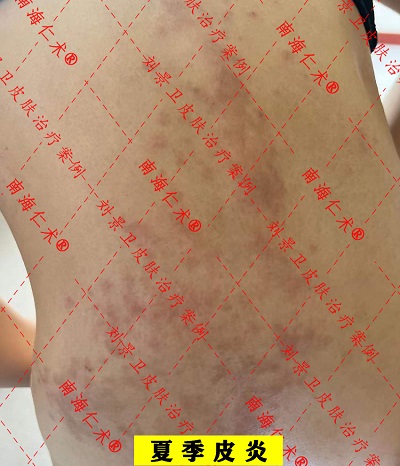 南海仁术®
皮肤治疗案例
南海仁术®
肤治疗案例
治疗案例
刘景卫皮肤治疗案例
南海仁术®
南海仁术®
南海仁术®
刘景卫皮肤治疗案例
刘景卫皮肤治疗案例
刘景卫皮肤治疗
刘景卫皮肤治疗
南海仁术®
南海仁术®
夏季皮炎